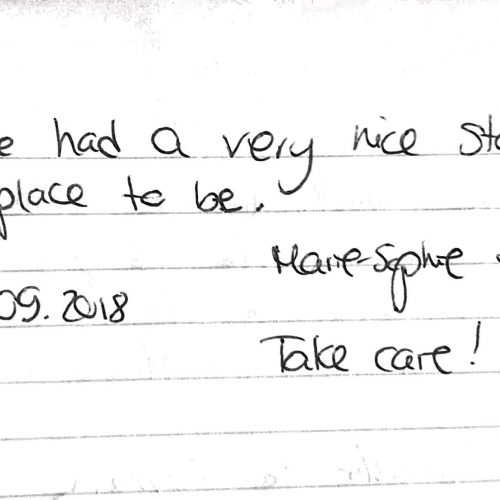 e had a very nice sta
place to be.
Marie-Sophie
09.2018
Take care!